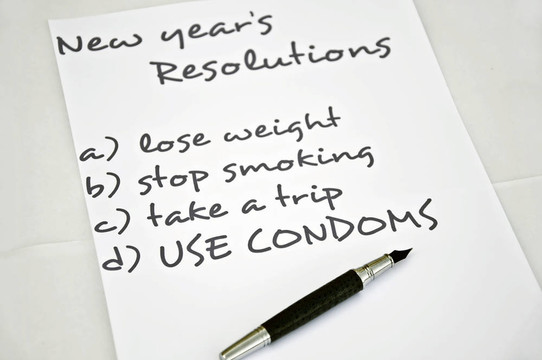 New year's
Resolutions
a) lose weight
b) stop smoking
c) take a trip
d) USE CONDOMS